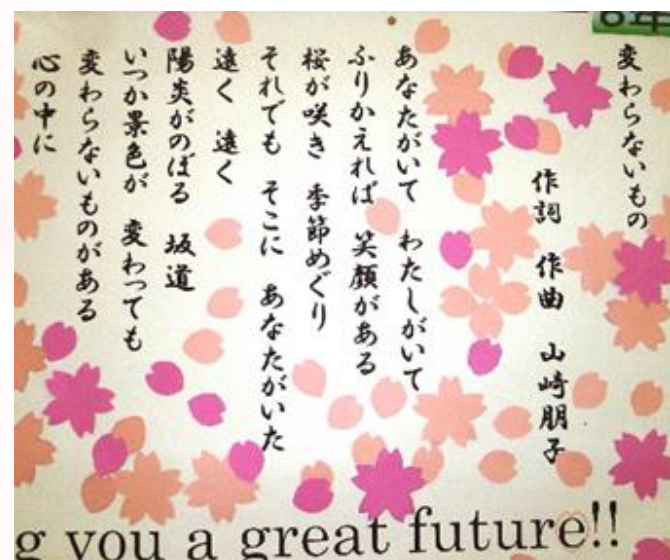 6年
変わらないもの
作詞 作曲 山崎朋子
あなたがいて わたしがいて
ふりかえれば 笑顔がある
桜が咲き 季節めぐり
それでも そこに あなたがいた
遠く 遠く
陽炎がのぼる 坂道
いつか景色が 変わっても
変わらないものがある
心の中に
g you a great future!!